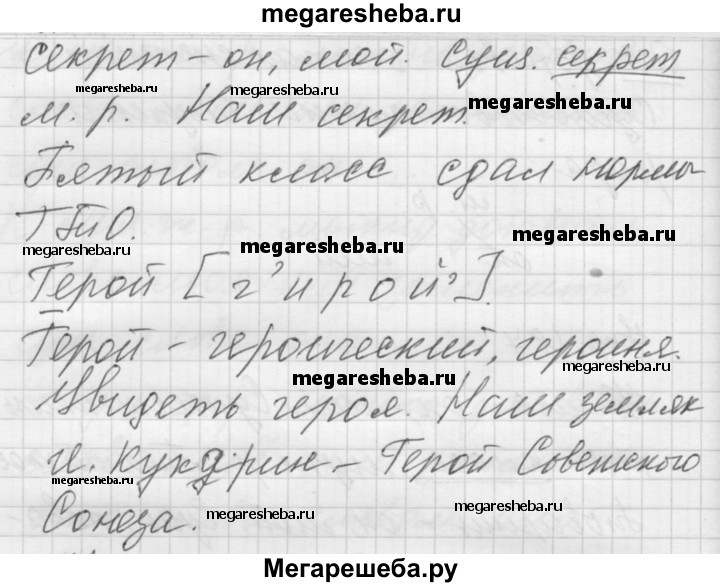 megaresheba.ru
секрет – он, мой. Сущ. секрет
megaresheba.ru megaresheba.ru megaresheba.ru
м. р. Наш секрет.
Пятый класс сдал нормы
ГТО.
megaresheba.ru megaresheba.ru megaresheba.ru
Герой [г'ирой'].
Герой – героический, героиня.
megaresheba.ru megaresheba.ru
Увидеть героя. Наш земляк
Н. Кукдрин – Герой Советского
megaresheba.ru
Союза.
megaresheba.ru megaresheba.ru
Мегарешеба.ру